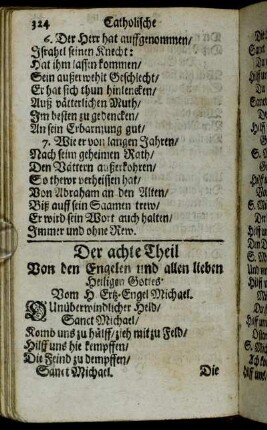 324 Catholische
6. Der Herr hat auffgenommen/
Israhel seinen Knecht:
Hat ihm lassen kommen/
Sein außerwehlt Geschlecht/
Er hat sich thun hinlencken/
Auß vätterlichen Muth/
Im besten zu gedencken/
An sein Erbarmung gut/
7. Wie er von langen Jahren/
Nach seim geheimen Rath/
Den Vättern außerkohren/
So thewr verheissen hat/
Von Abraham an den Alten/
Biß auff sein Saamen trew/
Er wird sein Wort auch halten/
Immer und ohne Rew.
Der achte Theil
Von den Engelen und allen lieben
Heiligen Gottes
Vom H. Ertz-Engel Michael.
O Unüberwindlicher Held/
Sanct Michael/
Komb uns zu hülff/ zieh mit zu Feld/
Hilff uns hie kempffen/
Die Feind zu dempffen/
Sanct Michael. Die